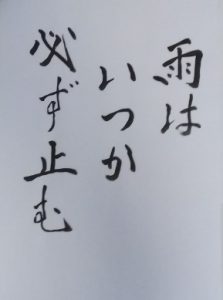 雨は
いつか
必ず止む